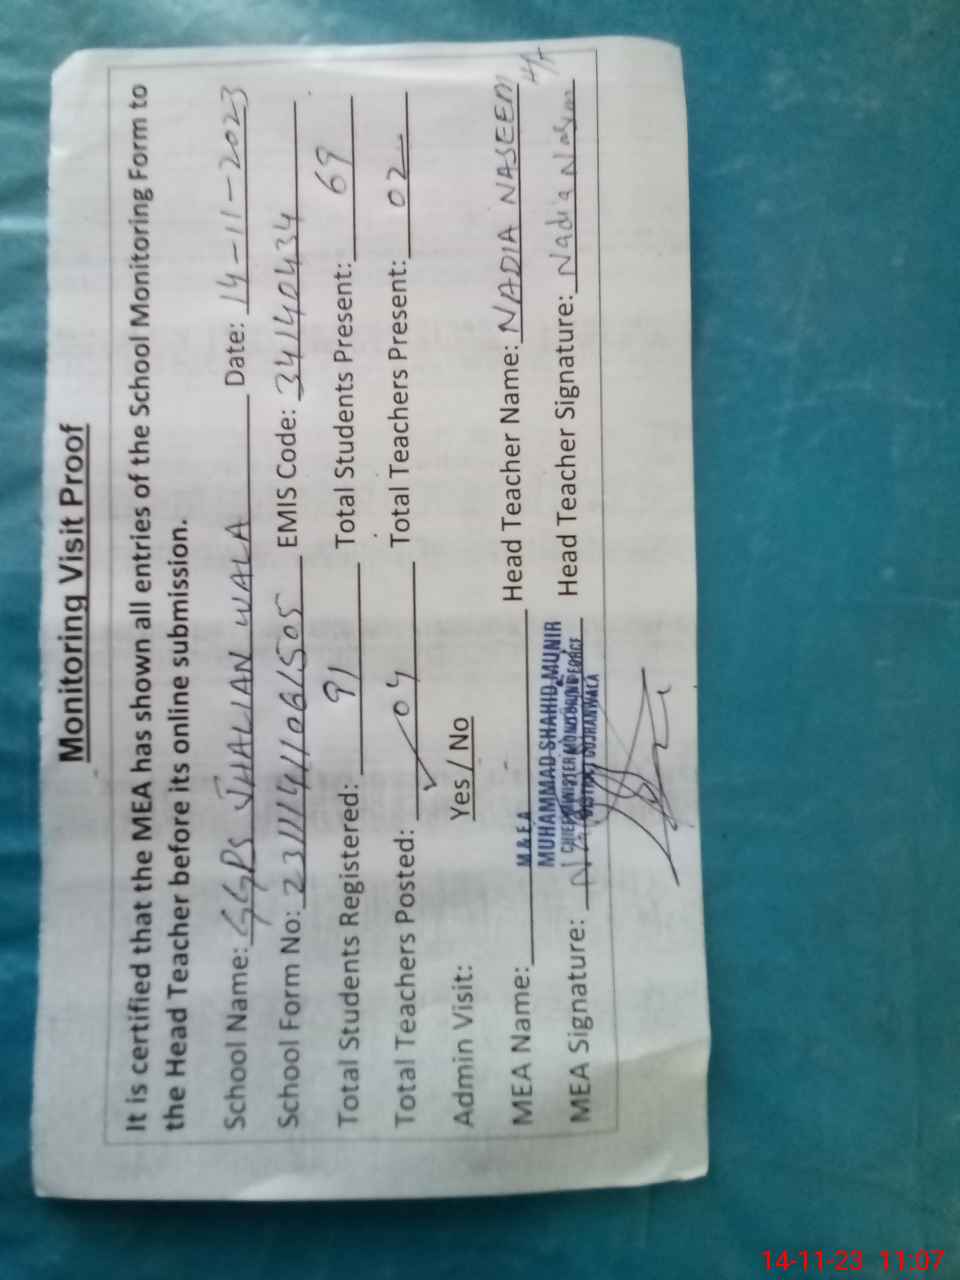 Monitoring Visit Proof
It is certified that the MEA has shown all entries of the School Monitoring Form to
the Head Teacher before its online submission.
School Name: GGPS JHALIAN WALA Date: 14-11-2023
School Form No: EMIS Code: 34140434
Total Students Registered: 91 Total Students Present: 69
Total Teachers Posted: 04 Total Teachers Present: 02
Admin Visit: Yes / No
MEA Name: M & E A Head Teacher Name: NADIA NASEEM
MUHAMMAD SHAHID MUNIR
CHIEF MINISTER MONITORING FORCE
DISTRICT GUJRANWALA
MEA Signature: Head Teacher Signature: Nadia Nasem
14-11-23 11:07